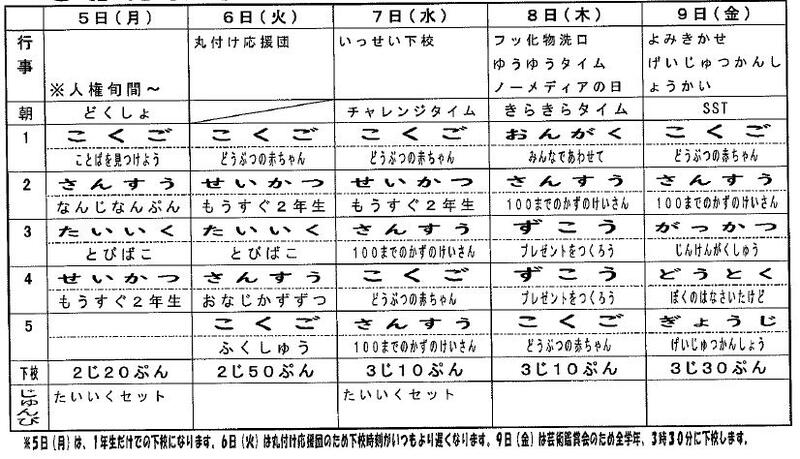 5日(月) 6日(火) 7日(水) 8日(木) 9日(金)
行事 ※人権旬間～ 丸付け応援団 いっせい下校 フッ化物洗口 よみきかせ
ゆうゆうタイム げいじゅつかんし
ノーメディアの日 ょうかい
朝 どくしょ チャレンジタイム きらきらタイム SST
1 こくご こくご こくご おんがく こくご
ことばを見つけよう どうぶつの赤ちゃん どうぶつの赤ちゃん みんなであわせて どうぶつの赤ちゃん
2 さんすう せいかつ せいかつ さんすう さんすう
なんじなんぷん もうすぐ2年生 もうすぐ2年生 100までのかずのけいさん 100までのかずのけいさん
3 たいいく たいいく さんすう ずこう がっかつ
とびばこ とびばこ 100までのかずのけいさん プレゼントをつくろう じんけんがくしゅう
4 せいかつ さんすう こくご ずこう どうとく
もうすぐ2年生 おなじかずずつ どうぶつの赤ちゃん プレゼントをつくろう ぼくのはなさいたけど
5 こくご さんすう こくご ぎょうじ
ふくしゅう 100までのかずのけいさん どうぶつの赤ちゃん げいじゅつかんしょう
下校 2じ20ぷん 2じ50ぷん 3じ10ぷん 3じ10ぷん 3じ30ぷん
じゅんび たいいくセット たいいくセット
※5日(月)は、1年生だけでの下校になります。6日(火)は丸付け応援団のため下校時刻がいつもより遅くなります。9日(金)は芸術鑑賞会のため全学年、3時30分に下校します。